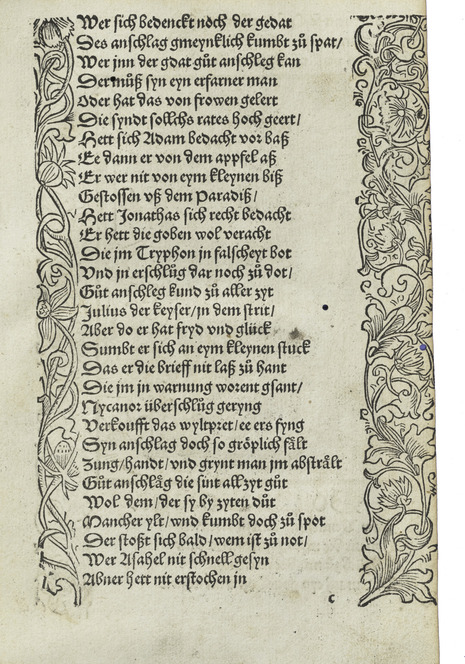 Wer sich bedenckt noch der gedat
Des anschlag gmeynklich kumbt zů spat/
Wer jnn der gdat gůt anschleg kan
Der můß syn eyn erfarner man
Oder hat das von frowen gelert
Die syndt sollchs rates hoch geert/
Hett sich Adam bedacht vor baß
Ee dann er von dem appfel aß
Er wer nit von eym kleynen biß
Gestossen vß dem Paradiß/
Hett Jonathas sich recht bedacht
Er hett die goben wol veracht
Die jm Tryphon jn falscheyt bot
Vnd jn erschlůg dar noch zů dot/
Gůt anschleg kund zů aller zyt
Julius der keyser/jn dem strit/
Aber do er hat fryd vnd glück
Sumbt er sich an eym kleynen stuck
Das er die brieff nit laß zů hant
Die jm in warnung worent gsant/
Nycanor überschlůg geryng
Verkoufft das wyltpret/ee ers fyng
Syn anschlag doch so gröplich fält
Zung/handt/vnd grynt man jm abstrält
Gůt anschläg die sint allzyt gůt
Wol dem/der sy by zyten důt
Mancher ylt/wnd kumbt doch zů spot
Der stoßt sich bald/wem ist zů not/
Wer Asahel nit schnell gesyn
Abner hett nit erstochen jn
c